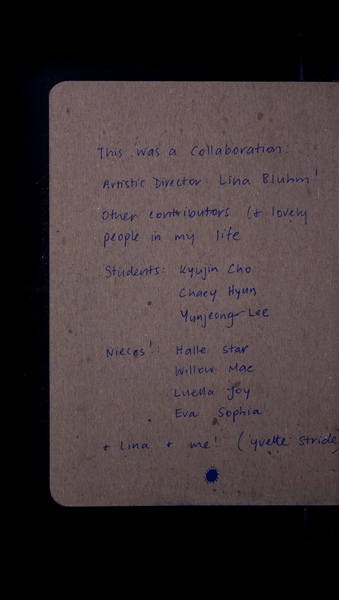 This was a Collaboration
Artistic Director: Lina Bluhm!
Other contributors (+ lovely
people in my life
Students: Kyujin Cho
Chaey Hyun
Yunjeong Lee
Nieces!: Halle Star
Willow Mae
Luella Joy
Eva Sophia
+ Lina + me! (yvette Stride